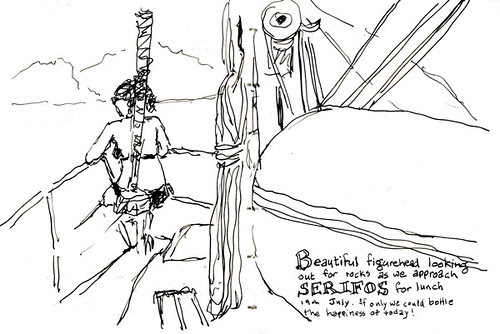 Beautiful figurehead looking
out for rocks as we approach
SERIFOS for lunch
19th July. If only we could bottle
the happiness of today!